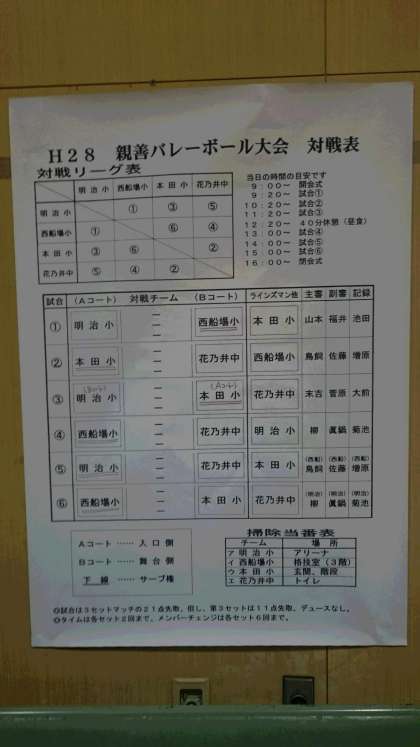 H28 親善バレーボール大会 対戦表
対戦リーグ表
明治小 西船場小 本田小 花乃井中
明治小 ① ③ ⑤
西船場小 ① ⑥ ④
本田小 ③ ⑥ ②
花乃井中 ⑤ ④ ②
当日の時間の目安です
9:00～ 開会式
9:20～ 試合①
10:20～ 試合②
11:20～ 試合③
12:20～ 40分休憩(昼食)
13:00～ 試合④
14:00～ 試合⑤
15:00～ 試合⑥
16:00～ 閉会式
試合 (Aコート) 対戦チーム (Bコート) ラインズマン他 主審 副審 記録
① 明治小 ー ー ー 西船場小 本田小 山本 福井 池田
② 本田小 ー ー ー 花乃井中 西船場小 鳥飼 佐藤 増原
(Bコート) (Aコート)
③ 明治小 ー ー ー 本田小 花乃井中 末吉 菅原 大前
④ 西船場小 ー ー ー 花乃井中 明治小 柳 眞鍋 菊池
(西船) (西船) (西船)
⑤ 明治小 ー ー ー 花乃井中 本田小 鳥飼 佐藤 増原
(明治) (明治) (明治)
⑥ 西船場小 ー ー ー 本田小 花乃井中 柳 眞鍋 菊池
Aコート …… 入口側
Bコート …… 舞台側
下線 …… サーブ権
掃除当番表
チーム 場所
ア 明治小 アリーナ
イ 西船場小 格技室(3階)
ウ 本田小 玄関、階段
エ 花乃井中 トイレ
◎試合は3セットマッチの21点先取、但し、第3セットは11点先取、デュースなし。
◎タイムは各セット2回まで、メンバーチェンジは各セット6回まで。